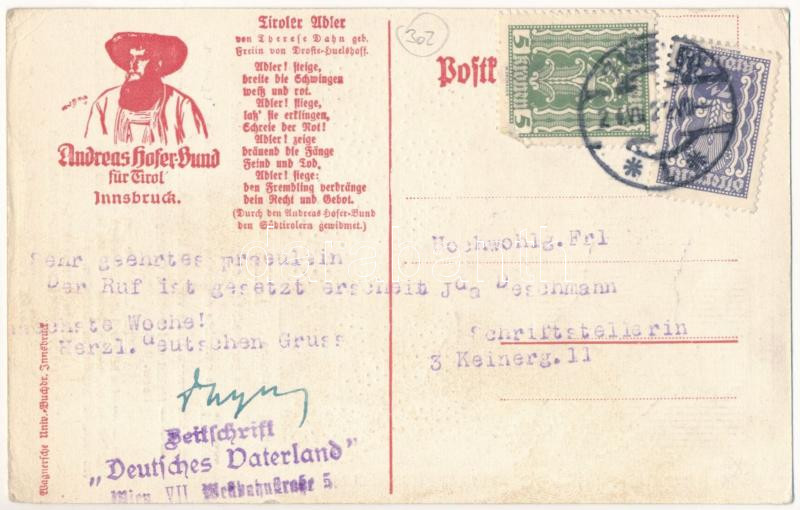 Tiroler Adler
von Therese Dahn geb.
Freiin von Droste-Huelshoff.
Adler! steige,
breite die Schwingen
weiß und rot.
Adler! fliege,
laß' sie erklingen,
Schreie der Not!
Adler! zeige
dräuend die Fänge
Feind und Tod.
Adler! siege:
den Fremdling verdränge
dein Recht und Gebot.
(Durch den Andreas Hofer-Bund
den Südtirolern gewidmet.)
Andreas Hofer-Bund
für Tirol
Innsbruck.
302
Postk
5 KRONEN 5
Sehr geehrtes Fraeulein
Der Ruf ist gesetzt erscheit
naechste Woche!
Herzl. deutschen Gruss
Zeitschrift
„Deutsches Vaterland"
Wien VII Westbahnstraße 5.
Wagnersche Univ.-Buchdr. Innsbruck
Hochwohlg.Frl
Jda Deschmann
Schriftstellerin
3 Keinerg.11